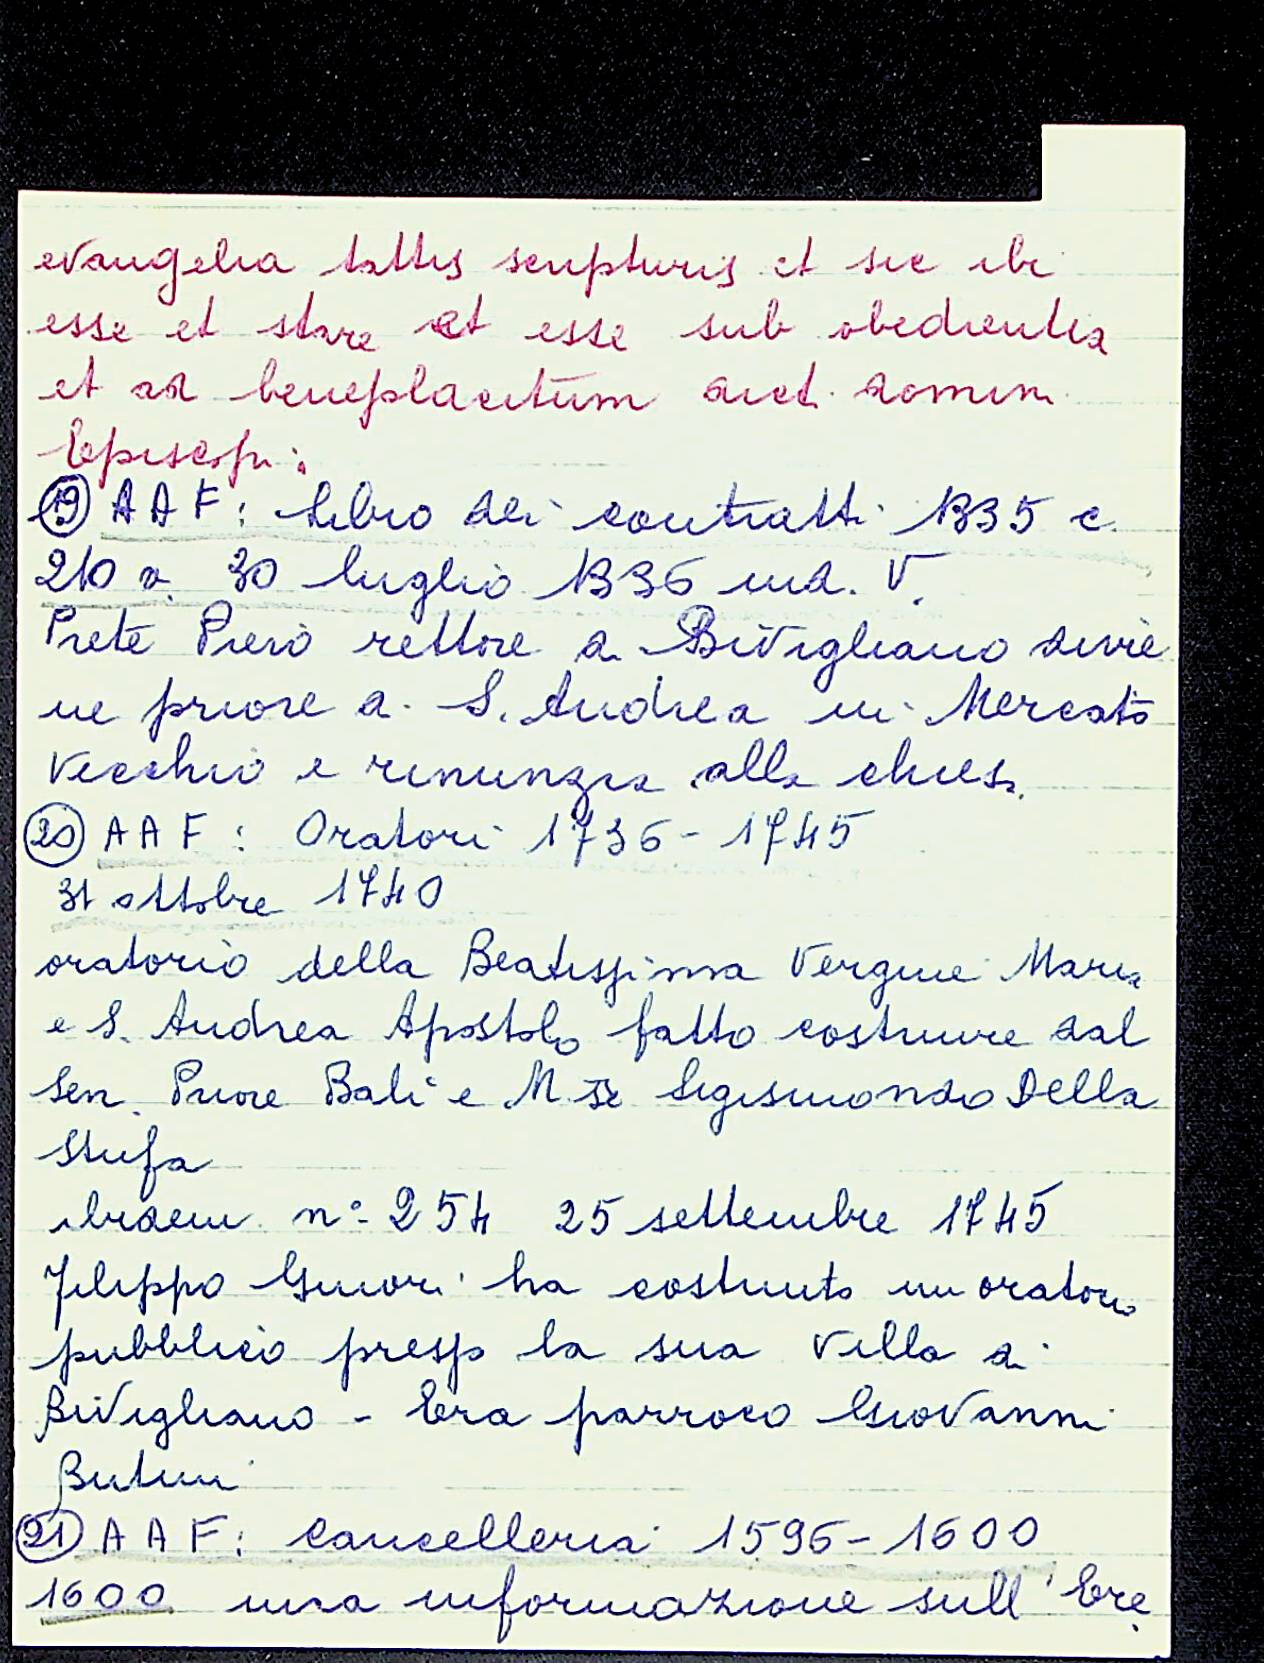 evangelia tattis scripturis et sic ibi
esse et stare et esse sub obedientia
et ad beneplacitum dict. domini
Episcopi.
19 A A F: Libro dei contratti 1335 c.
210 v. 30 luglio 1336 ind. V.
Prete Piero rettore a Bivigliano divie
ne priore a S. Andrea in Mercato
Vecchio e rinunzia alla chiesa.
20 A A F: Oratori 1736 - 1745
31 ottobre 1740
oratorio della Beatissima Vergine Maria
e S. Andrea Apostolo fatto costruire dal
Sen. Priore Balì e M.se Sigismondo Della
Stufa
ibidem n° 254 25 settembre 1745
Filippo Ginori ha costruito un oratorio
pubblico presso la sua Villa a
Bivigliano - Era parroco Giovanni
Butini
21 A A F: Cancelleria 1596 - 1600
1600 una informazione sull' Ere